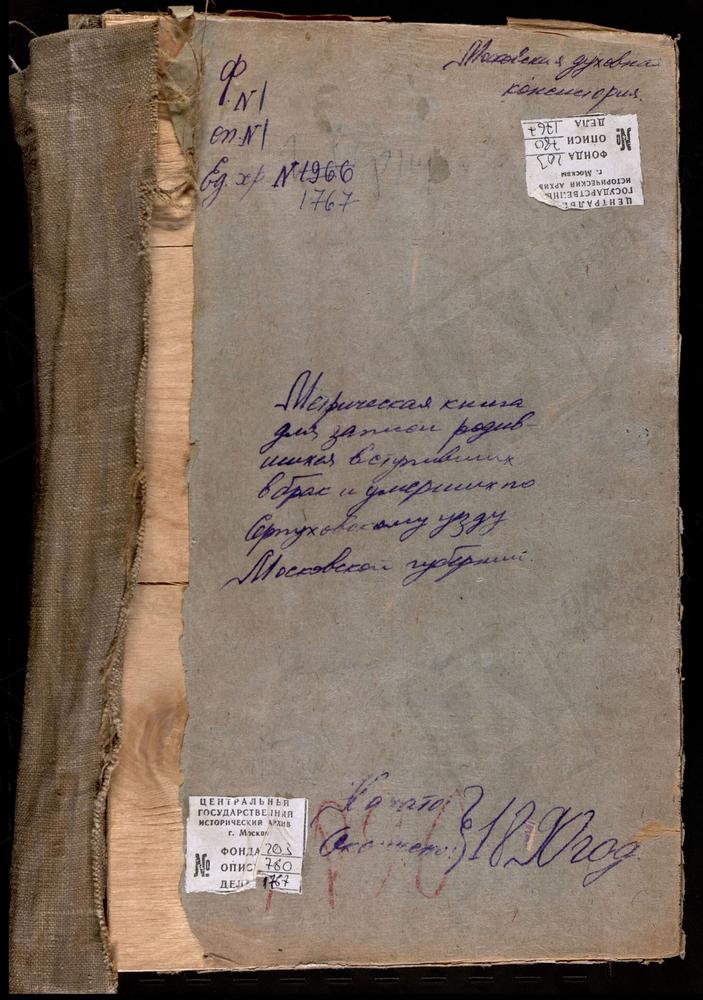 Московская духовная
консистория.
Ф. N1
оп. N1
Ед. хр N 1966
1767
ЦЕНТРАЛЬН
ГОСУДАРСТВЕННЫ
ИСТОРИЧЕСКИЙ АРХИВ
г. Москвы
ФОНДА 203
№ ОПИСИ 780
ДЕЛА 1767
Метрическая книга
для записи родив-
шихся вступивших
в брак и умерших по
Серпуховскому уезду
Московской губернии.
Начато:
Окончено: } 1890 год.
1890
ЦЕНТРАЛЬНЫЙ
ГОСУДАРСТВЕННЫЙ
ИСТОРИЧЕСКИЙ АРХИВ
г. Москвы
ФОНДА 203
№ ОПИС 780
ДЕЛ 1767